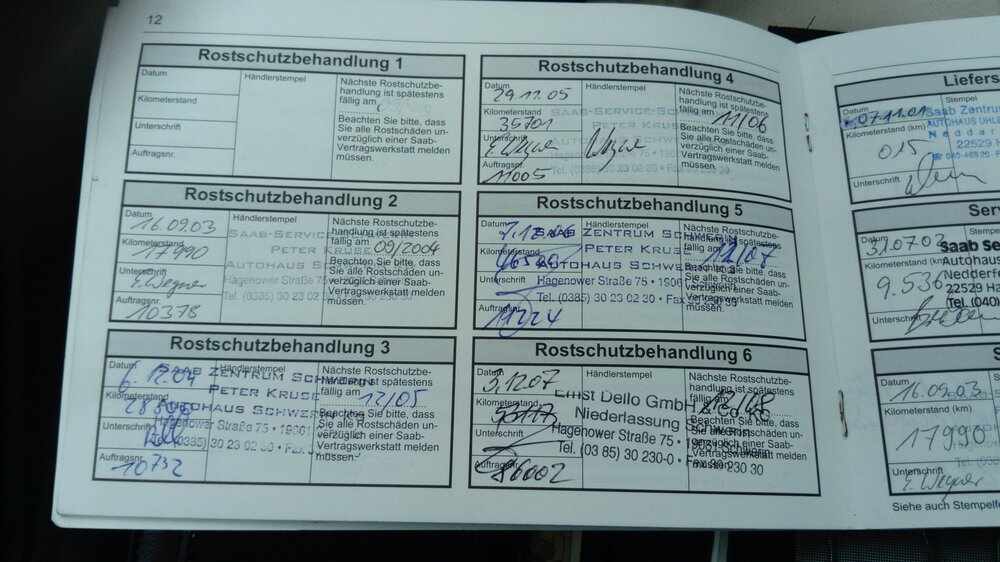 12
Rostschutzbehandlung 1
Datum
Händlerstempel
Nächste Rostschutzbe-
handlung ist spätestens
fällig am
Kilometerstand
Beachten Sie bitte, dass
Sie alle Rostschäden un-
verzüglich einer Saab-
Vertragswerkstatt melden
müssen.
Unterschrift
Auftragsnr.
Rostschutzbehandlung 2
Datum
16.09.03
Händlerstempel
Nächste Rostschutzbe-
handlung ist spätestens
fällig am 09/2004
Kilometerstand
17990
Saab-Service-
Peter Kruse
Autohaus
Hagenower Straße 75
Tel. (0385) 30 23 02
Beachten Sie bitte, dass
Sie alle Rostschäden un-
verzüglich einer Saab-
Vertragswerkstatt melden
müssen.
Unterschrift
E. Wegner
Auftragsnr.
10378
Rostschutzbehandlung 3
Datum
6.12.04
Händlerstempel
Nächste Rostschutzbe-
handlung ist spätestens
fällig am 12/05
Kilometerstand
Saab Zentrum Schwerin
Peter Kruse
Autohaus Schwerin
Hagenower Straße 75 • 19061
(0385) 30 23 02 30 • Fax
Beachten Sie bitte, dass
Sie alle Rostschäden un-
verzüglich einer Saab-
Vertragswerkstatt melden
müssen.
Unterschrift
Auftragsnr.
10732
Rostschutzbehandlung 4
Datum
29.11.05
Händlerstempel
Nächste Rostschutzbe-
handlung ist spätestens
fällig am 11/06
Kilometerstand
35701
Saab-Service-
Peter Kruse
Hagenower Straße 75 •
Tel. (0385) 30 23 02 30 • Fax
Beachten Sie bitte, dass
Sie alle Rostschäden un-
verzüglich einer Saab-
Vertragswerkstatt melden
müssen.
Unterschrift
E. Wegner
Auftragsnr.
11005
Rostschutzbehandlung 5
Datum
Händlerstempel
Nächste Rostschutzbe-
handlung ist spätestens
fällig am 12/07
Kilometerstand
Saab Zentrum Schwerin
Peter Kruse
Autohaus Schwerin
Hagenower Straße 75 •
Tel. (0385) 30 23 02 30 • Fax
Beachten Sie bitte, dass
Sie alle Rostschäden un-
verzüglich einer Saab-
Vertragswerkstatt melden
müssen.
Unterschrift
Auftragsnr.
Rostschutzbehandlung 6
Datum
3.12.07
Händlerstempel
Nächste Rostschutzbe-
handlung ist spätestens
fällig am
Kilometerstand
Ernst Dello GmbH & Co. KG
Niederlassung Schwerin
Hagenower Straße 75 • 19061 Schwerin
Tel. (03 85) 30 230-0 • Fax 30 230 30
Beachten Sie bitte, dass
Sie alle Rostschäden un-
verzüglich einer Saab-
Vertragswerkstatt melden
müssen.
Unterschrift
Auftragsnr.
Liefers
Datum
07.11.01
Stempel
Saab Zentr
Autohaus Uhle
Neddar
22529 H
Kilometerstand (km)
015
Unterschrift
Ser
Datum
31.07.03
Saab se
Autohaus
Nedderfe
22529 Ha
Tel. (040)
Kilometerstand (km)
9.536
Unterschrift
S
Datum
16.09.03
Stempel
Kilometerstand (km)
17990
Unterschrift
E. Wegner
Siehe auch Stempelfe